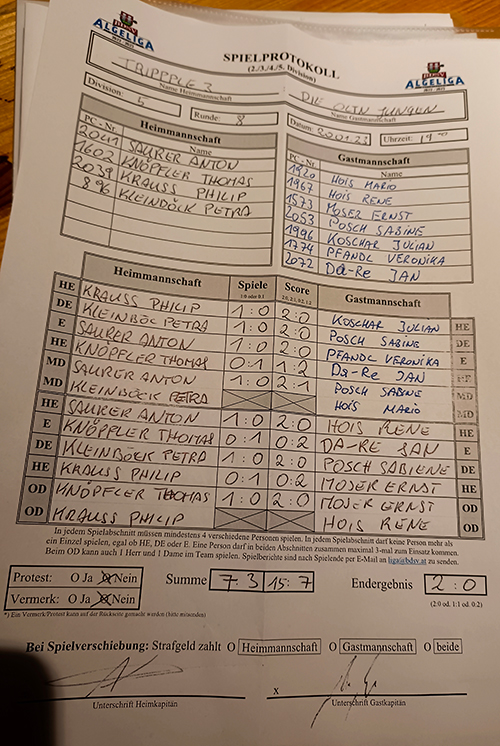 ALGELIGA
ALGELIGA
SPIELPROTOKOLL
(2./3./4./5. Division)
TRIPPPLE 3
DIE OLTN JUNGEN
Name Heimmannschaft
Name Gastmannschaft
Division: 5
Runde: 8
Datum:
Uhrzeit: 19
Heimmannschaft
PC - Nr. Name
2041 SAURER ANTON
1602 KNÖPFLER THOMAS
2039 KRAUSS PHILIP
896 KLEINBÖCK PETRA
Gastmannschaft
PC - Nr. Name
1920 HOIS MARIO
1967 HOIS RENE
1573 MOSER ERNST
2053 POSCH SABINE
1996 KOSCHAR JULIAN
1774 PFANDL VERONIKA
2072 Da-Re JAN
Heimmannschaft Spiele Score Gastmannschaft
1:0 oder 0:1 2:0, 2:1, 0:2, 1:2
HE KRAUSS PHILIP 1:0 2:0 KOSCHAR JULIAN HE
DE KLEINBÖC PETRA 1:0 2:0 POSCH SABINE DE
E SAURER ANTON 1:0 2:0 PFANDL VERONIKA E
HE KNÖPFLER THOMAS 0:1 1:2 Da-Re JAN HE
MD SAURER ANTON 1:0 2:1 POSCH SABINE MD
MD KLEINBÖCK PETRA HOIS MARIO MD
HE SAURER ANTON 1:0 2:0 HOIS RENE HE
E KNÖPFLER THOMAS 0:1 0:2 DA-RE JAN E
DE KLEINBÖCK PETRA 1:0 2:0 POSCH SABIENE DE
HE KRAUSS PHILIP 0:1 0:2 MOSER ERNST HE
OD KNÖPFLER THOMAS 1:0 2:0 MOSER ERNST OD
OD KRAUSS PHILIP HOIS RENE OD
In jedem Spielabschnitt müssen mindestens 4 verschiedene Personen spielen. In jedem Spielabschnitt darf keine Person mehr als
ein Einzel spielen, egal ob HE, DE oder E. Eine Person darf in beiden Abschnitten zusammen maximal 3-mal zum Einsatz kommen.
Beim OD kann auch 1 Herr und 1 Dame im Team spielen. Spielberichte sind nach Spielende per E-Mail an liga@bdsv.at zu senden.
Protest: O Ja O Nein
Summe 7 3 15:7 Endergebnis 2:0
Vermerk: O Ja O Nein
(2:0 od. 1:1 od. 0:2)
*) Ein Vermerk/Protest kann auf der Rückseite gemacht werden (bitte mitsenden)
Bei Spielverschiebung: Strafgeld zahlt O Heimmannschaft O Gastmannschaft O beide
x
Unterschrift Heimkapitän
Unterschrift Gastkapitän